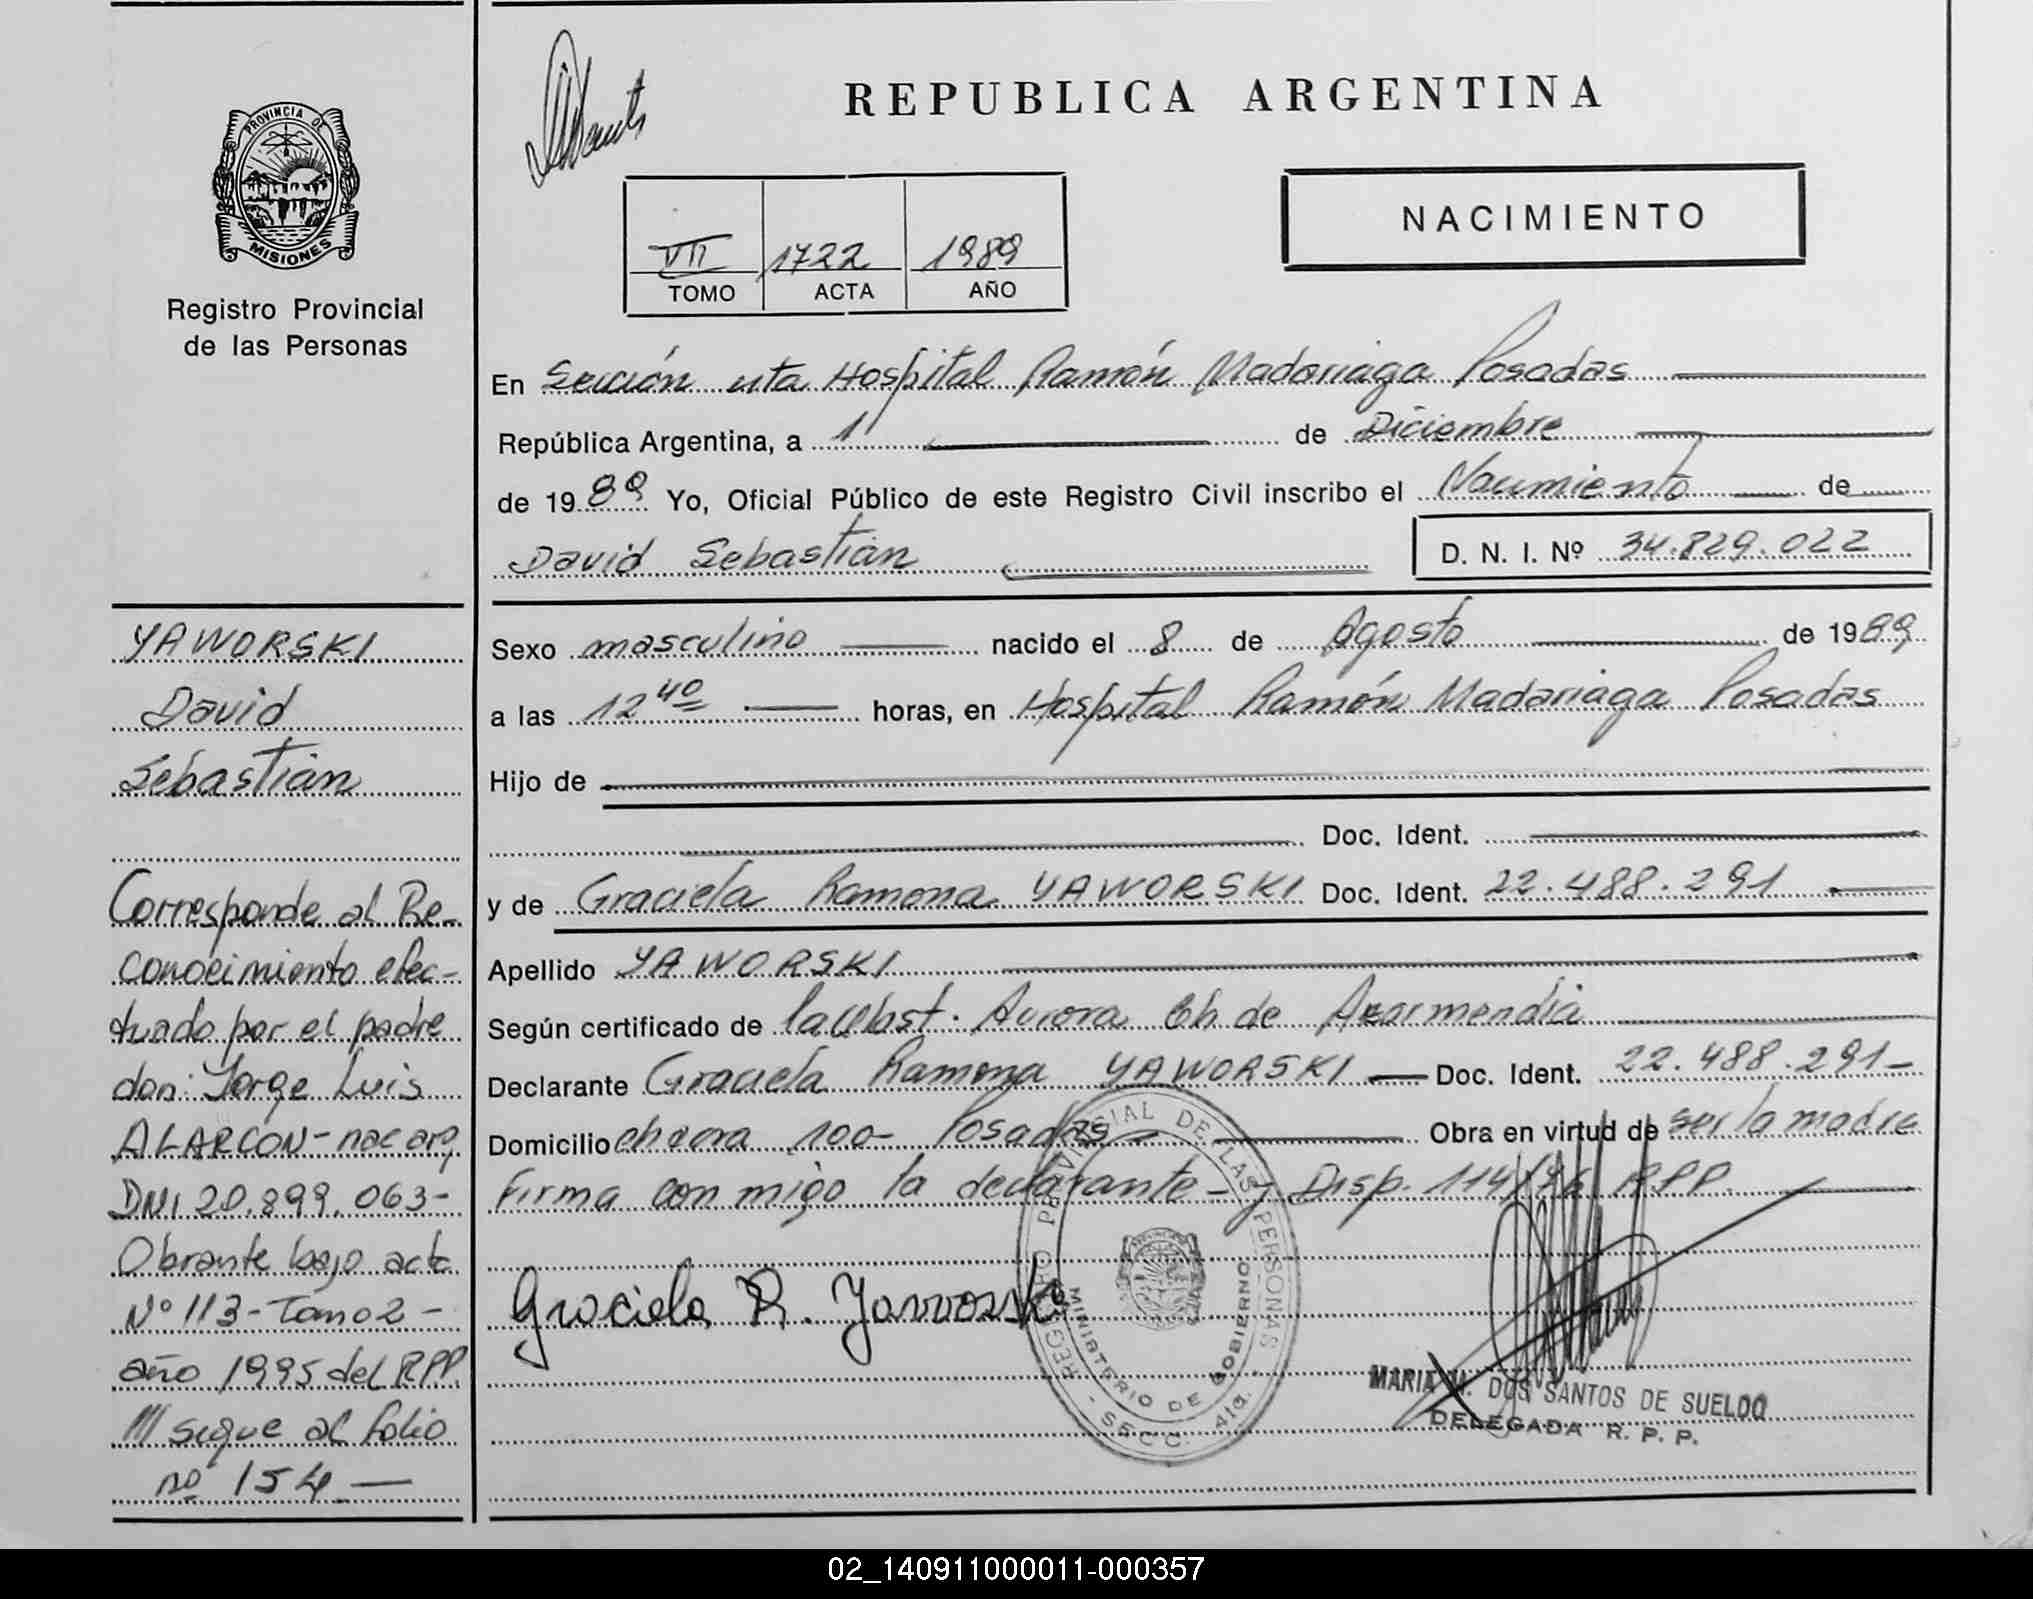 PROVINCIA DE
MISIONES
Registro Provincial
de las Personas
YAWORSKI
David
Sebastián
Corresponde al Re-
conocimiento efec-
tuado por el padre
don: Jorge Luis
ALARCON - nac arg.
DNI 20.899.063-
Obrante bajo acta
Nº 113 - Tomo 2 -
año 1995 del RPP.
/// sigue al folio
nº 154 —
REPUBLICA ARGENTINA
VII 1722 1989
TOMO ACTA AÑO
NACIMIENTO
En Sección esta Hospital Ramón Madariaga Posadas
República Argentina, a 1 de Diciembre
de 1989 Yo, Oficial Público de este Registro Civil inscribo el Nacimiento de
David Sebastián D. N. I. Nº 34.829.022
Sexo masculino nacido el 8 de Agosto de 1989
a las 12 40 horas, en Hospital Ramón Madariaga Posadas
Hijo de
Doc. Ident.
y de Graciela Ramona YAWORSKI Doc. Ident. 22.488.291
Apellido YAWORSKI
Según certificado de la Obst. Aurora Ch. de Azarmendia
Declarante Graciela Ramona YAWORSKI — Doc. Ident. 22.488.291-
Domicilio chacra 100- Posadas - Obra en virtud de ser la madre
Firma con migo la declarante - y Disp. 114/76 RPP.
Graciela R. Yaworski
REGISTRO PROVINCIAL DE LAS PERSONAS
MINISTERIO DE GOBIERNO
- SECC. 4ta. -
MARIA M. DOS SANTOS DE SUELDO
DELEGADA R. P. P.
02_140911000011-000357